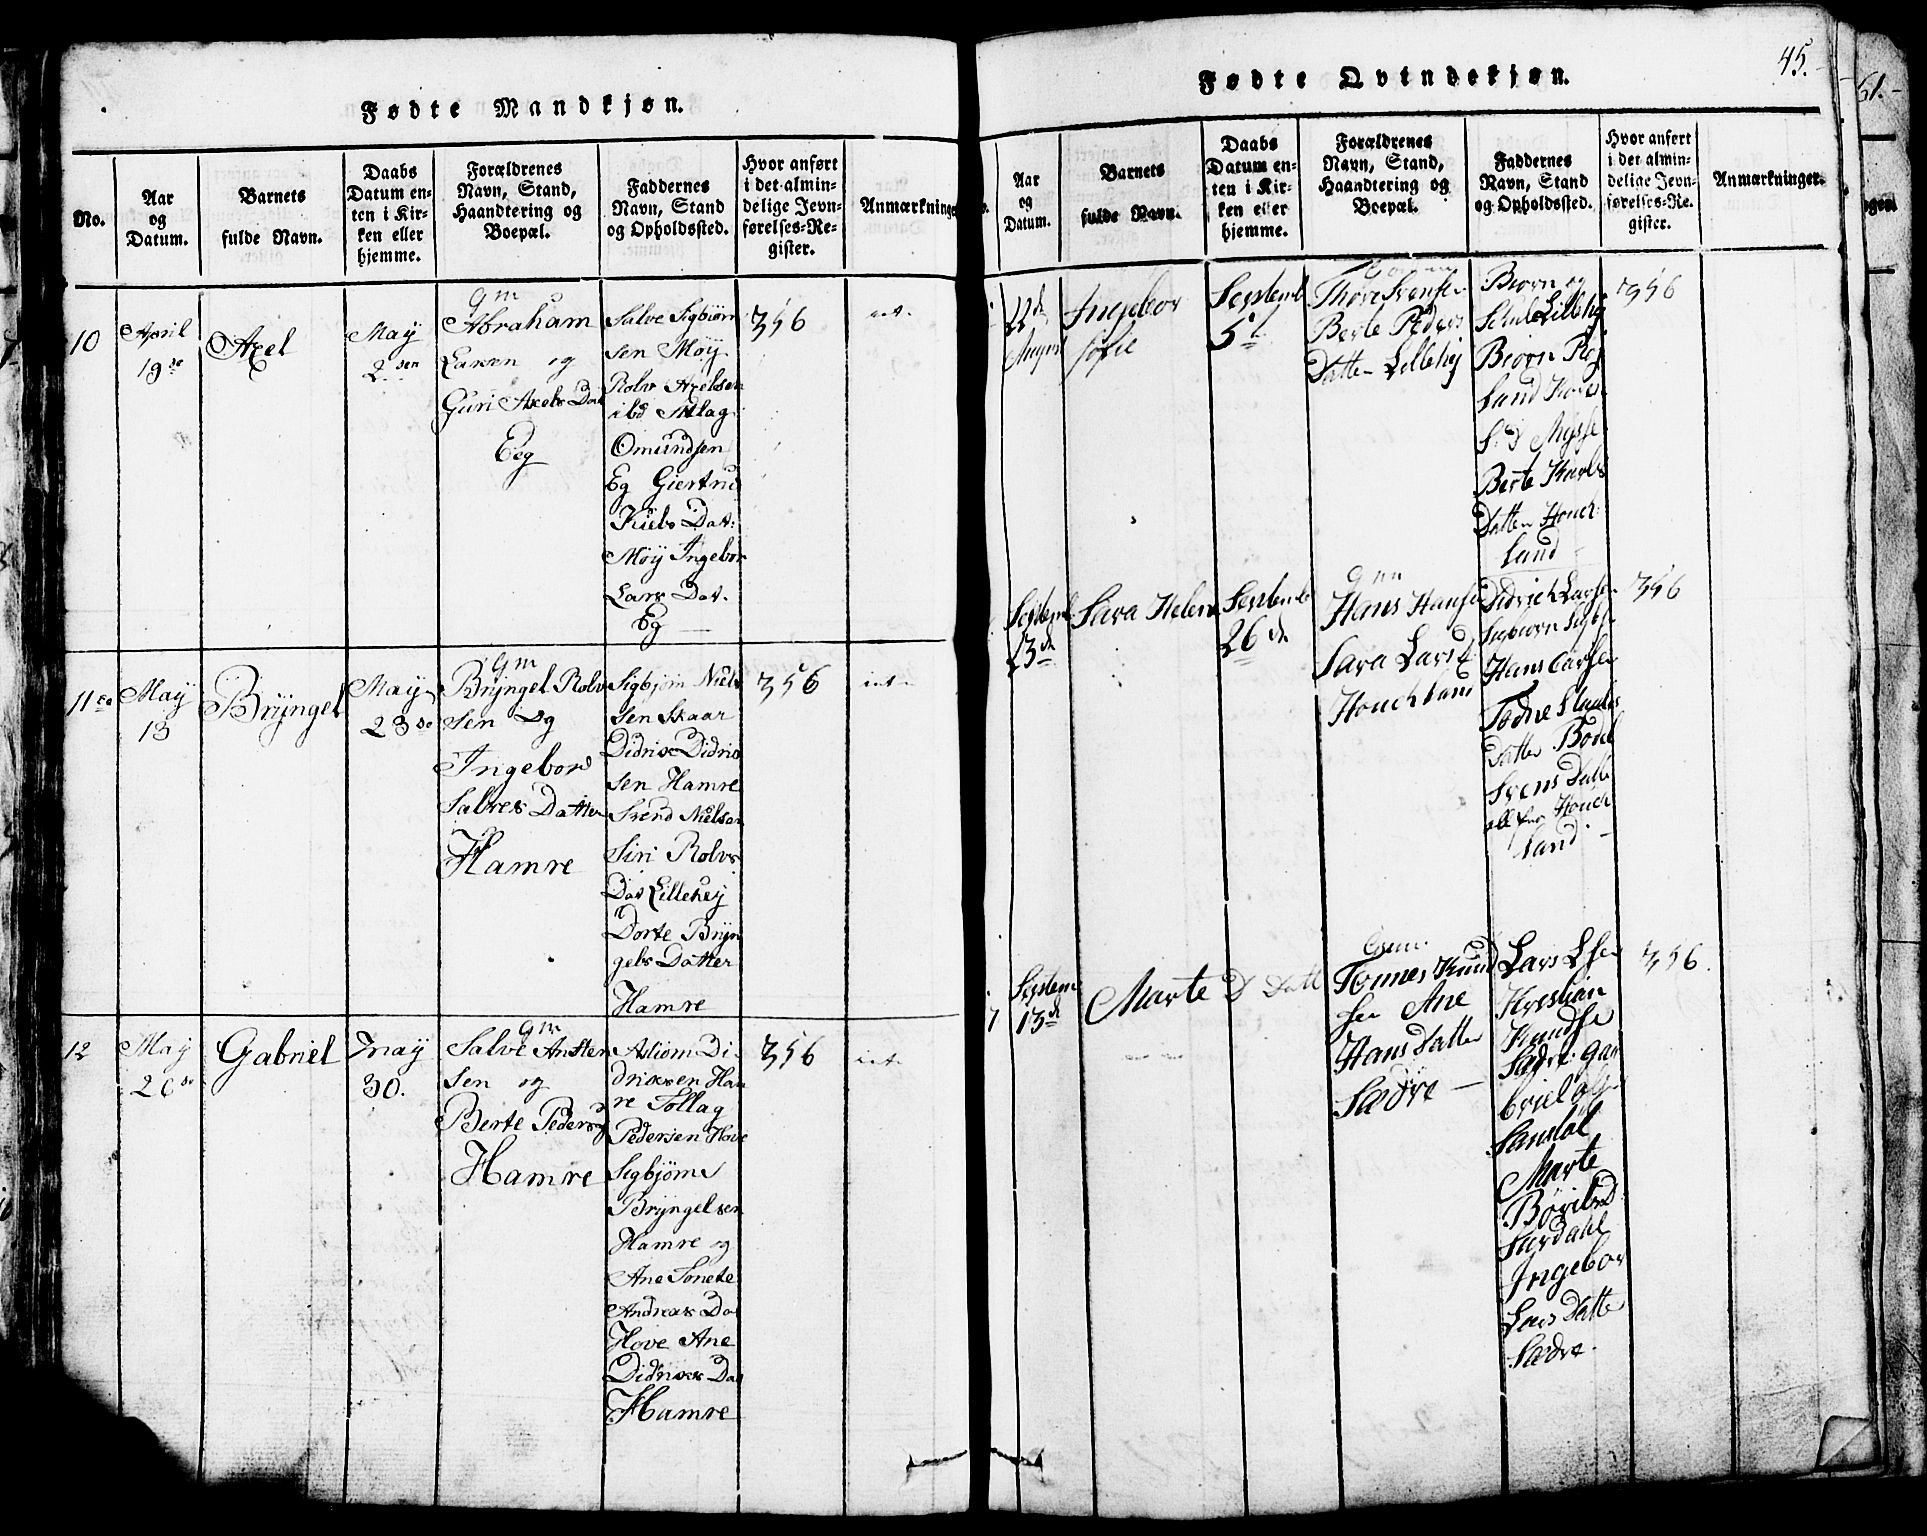 Fødte Mandkjøn.
No.
Aar
og
Datum.
Barnets
fulde Navn.
Daabs
Datum en-
ten i Kir-
ken eller
hjemme.
Forældrenes
Navn, Stand,
Haandtering og
Boepæl.
Faddernes
Navn, Stand
og Opholdssted.
Hvor anført
i det almin-
delige Jevn-
førelses-Re-
gister.
Anmærkninge
10
April
19de
Axel
May
2den
Gm
Abraham
Larsen og
Guri Axels Dat
Eeg
Salve Sigbiørn
sen Møÿ
Rolv Axelsen
ibd Aslag
Omundsen
Eg Giertru
Kiels Dat:
Møÿ Ingebor
Lars Dat.
Eg
356
11te
May
13
Brÿngel
May
23de
Gm
Brÿngel Rolv
sen og
Ingebor
Salves Datter
Hamre
Sigbjørn Niels
sen Skaar
Didrix Didrix
sen Hamre
Svend Nielsen
Siri Rolvs
Dat Lillehej
Dorte Brÿn
gels Datter
Hamre
356
12
May
26de
Gabriel
may
30.
Gm
Salve Ansten
sen og
Berte Peders
Hamre
Asiom Di
drixsen Ham
re Tollag
Pedersen Hove
Sigbjørn
Brÿngelsen
Hamre og
Ane Tonete
Andreas Dat
Hove Ane
Didrixs Dat
Hamre
356
45.
Fødte Qvindekjøn.
Aar
og
Datum.
Barnets
fulde Navn.
Daabs
Datum en-
ten i Kir-
ken eller
hjemme.
Forældrenes
Navn, Stand,
Haandtering og
Boepæl.
Faddernes
Navn, Stand
og Opholdssted.
Hvor anført
i det almin-
delige Jevn-
førelses-Re-
gister.
Anmærkninger.
22de
August
Ingebor
Sofie
Septemb
5te
Thore Svense
Berte Peders
Datter Lillehej
Biørn og
Lillehej
Biørn Røj
land
Berte Karls
Datter Houch
land
356
Septem
23de
Sara Helene
Septemb
26de
Gm
Hans Hanse
Sara Lars D
Houchland
Didrich Larsen
Sigbiørn
Hans Larsen
Todne
Datter Bodel
Svens Datte
alle fra Houch
land
356
Septem
13de
Marte
D Datt
Gm
Tønnes Knud
sen Ane
Hans Datter
Sædre
Lars
Krestian
Knudse
Sædre Ga
briel
Sandal
Marte
Sardahl
Ingebor
Lars Datte
Sædre
356.
61.